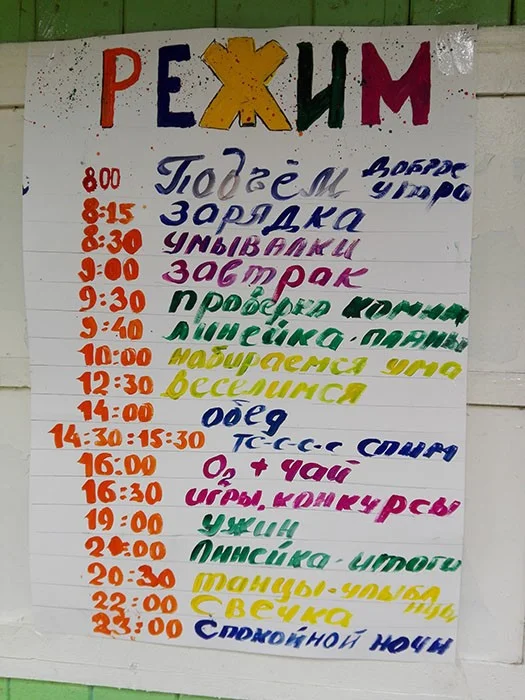 РЕЖИМ
8 00 Подъём доброе утро
8:15 зарядка
8:30 умывалки
9:00 завтрак
9:30 проверка комнат
9:40 линейка-планы
10:00 набираемся ума
12:30 веселимся
14:00 обед
14:30:15:30 тс-с-с-с спим
16:00 + чай
16:30 игры, конкурсы
19:00 ужин
20:00 линейка-итоги
20:30 танцы-улыба
22:00 Свечка
23:00 Спокойной ночи